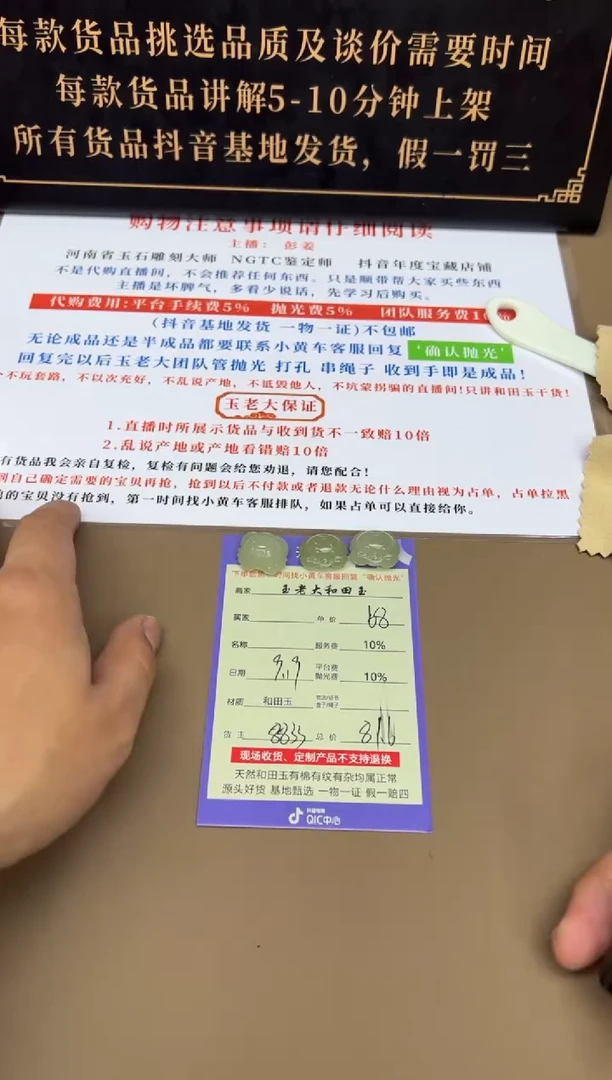 每款货品挑选品质及谈价需要时间
每款货品讲解5-10分钟上架
所有货品抖音基地发货，假一罚三
购物注意事项请仔细阅读
主播：彭姜
河南省玉石雕刻大师 NGTC鉴定师 抖音年度宝藏店铺
不是代购直播间，不会推荐任何东西。只是顺带帮大家买些东西
主播是坏脾气，多看少说话，先学习后购买。
代购费用:平台手续费5% 抛光费5% 团队服务费10%
(抖音基地发货 一物一证)不包邮
无论成品还是半成品都要联系小黄车客服回复‘确认抛光’
回复完以后玉老大团队管抛光 打孔 串绳子 收到手即是成品！
不玩套路，不以次充好，不乱说产地，不诋毁他人，不坑蒙拐骗的直播间!只讲和田玉干货!
玉老大保证
1.直播时所展示货品与收到货不一致赔10倍
2.乱说产地或产地看错赔10倍
有货品我会亲自复检，复检有问题会给您劝退，请您配合！
到自己确定需要的宝贝再抢，抢到以后不付款或者退款无论什么理由视为占单，占单拉黑
的宝贝没有抢到，第一时间找小黄车客服排队，如果占单可以直接给你。
时间找小黄车客服回复“确认抛光”
商家 玉老大和田玉
买家 单价 168
名称 服务费 10%
日期 9.19 平台费 抛光费 10%
材质 和田玉
货主 总价
现场收货、定制产品不支持退换
天然和田玉有棉有纹有杂均属正常
源头好货 基地甄选 一物一证 假一赔四
抖音电商
QIC中心